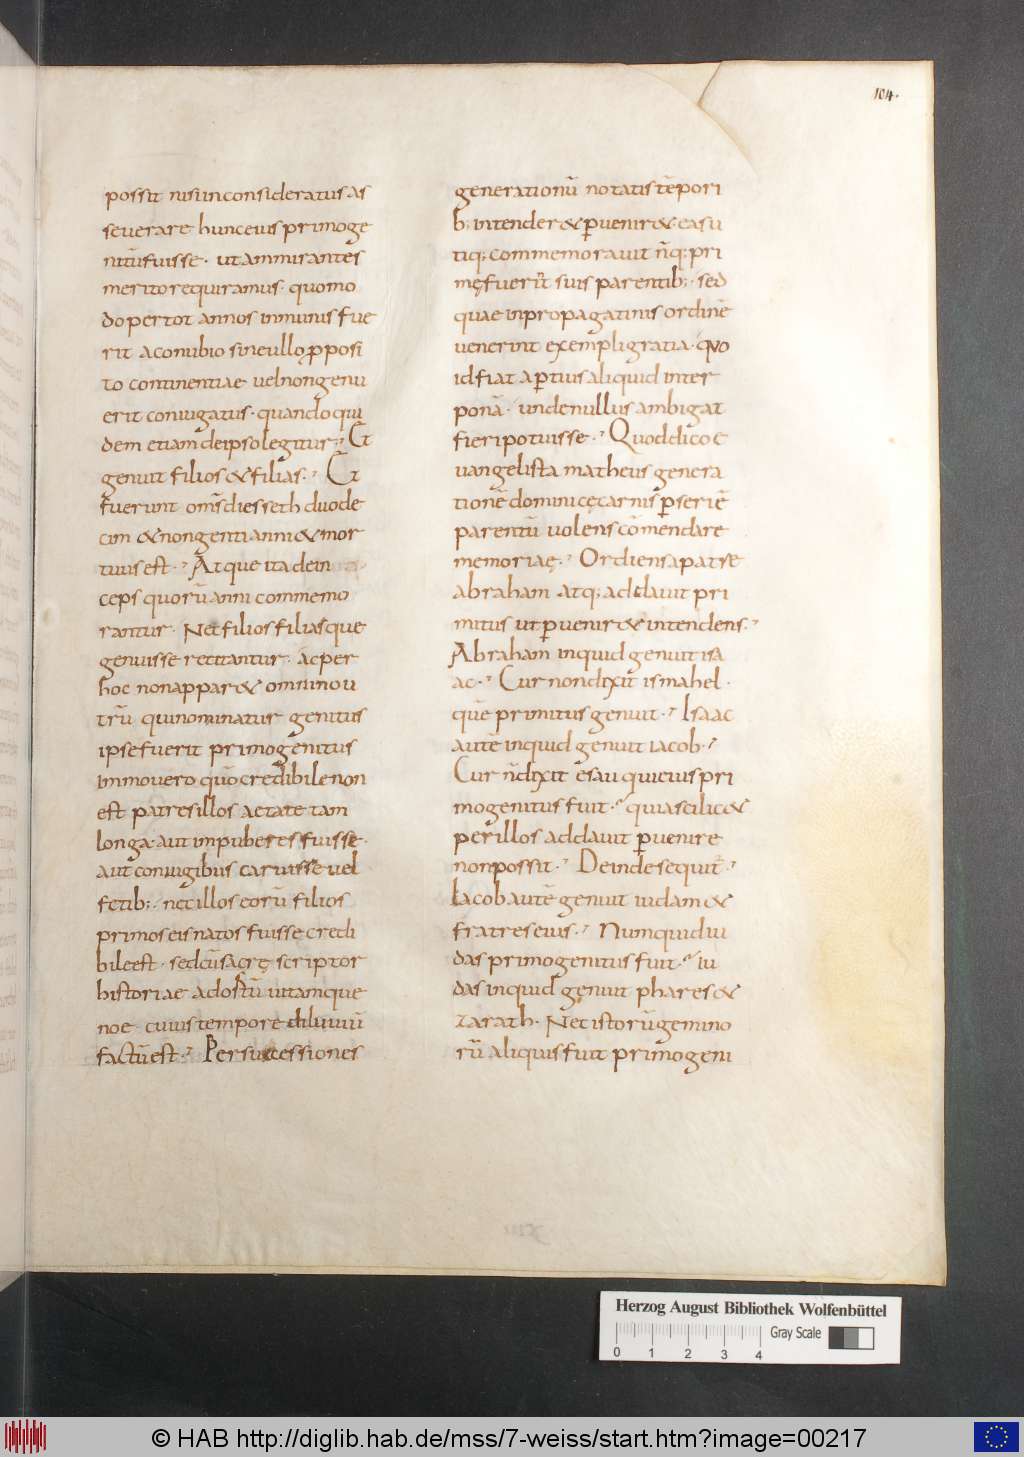 104.
possit nisi inconsideratus as
seuerare hunc eius primoge
nitū fuisse · ut ammirantes
merito requiramus · quomo
do per tot annos inmunis fue
rit a conubio sine ullo ꝓposi
to continentiae uel non genu
erit coniugatus · quando qui
dem etiam de ipso legitur ·⁊ Et
genuit filios & filias ·⁊ Et
fuerunt om̄s dies seth duode
cim & nongenti anni & mor
tuus est ·⁊ Atque ita dein
ceps quorū anni commemo
rantur · Nec filios filiasque
genuisse recitantur · ac per
hoc non appar& omnino u
trū qui nominatur genitus
ipse fuerit primogenitus
Immo uero qūo credibile non
est patres illos aetate tam
longa · aut inpuberes fuisse ·
aut coniugibus caruisse uel
fetib; · nec illos eorū filios
primos eis natos fuisse credi
bile est · sed cū sacrę scriptor
historiae ad ostū uitamque
noe cuius tempore diluuiū
factū est ·⁊ Per successiones
generationū notatis tēpori
b; intender& ꝑuenir& ea su
tiq; commemorauit n̄q; pri
mę fuer̄t suis parentib; · sed
quae in propagatinis ordinē
uenerint exempli gratia · quo
id fiat aꝑtius aliquid inter
ponā · unde nullus ambigat
fieri potuisse ·⁊ Quod dico e
uangelista matheus genera
tionē dominicę carnis ꝑ seriē
parentū uolens cōmendare
memoriaę ·⁊ Ordiens a patre
abraham atq; ad dauit pri
mitus ut ꝑuenir& intendens ·⁊
Abraham inquid genuit isa
ac ·⁊ Cur non dixit ismahel ·
quē primitus genuit ·⁊ Isaac
autē inquid genuit iacob ·⁊
Cur n̄ dixit esau qui eius pri
mogenitus fuit ·⁊ quia scilic&
per illos ad dauit ꝑuenire
non possit ·⁊ Deinde sequit̄ ·⁊
Iacob autē genuit iudam &
fratres eius ·⁊ Numquid iu
das primogenitus fuit ·⁊ Iu
das inquid genuit phares &
zarath · Nec istorū gemino
rū aliquis fuit primogeni
Herzog August Bibliothek Wolfenbüttel
Gray Scale
0 1 2 3 4
© HAB http://diglib.hab.de/mss/7-weiss/start.htm?image=00217